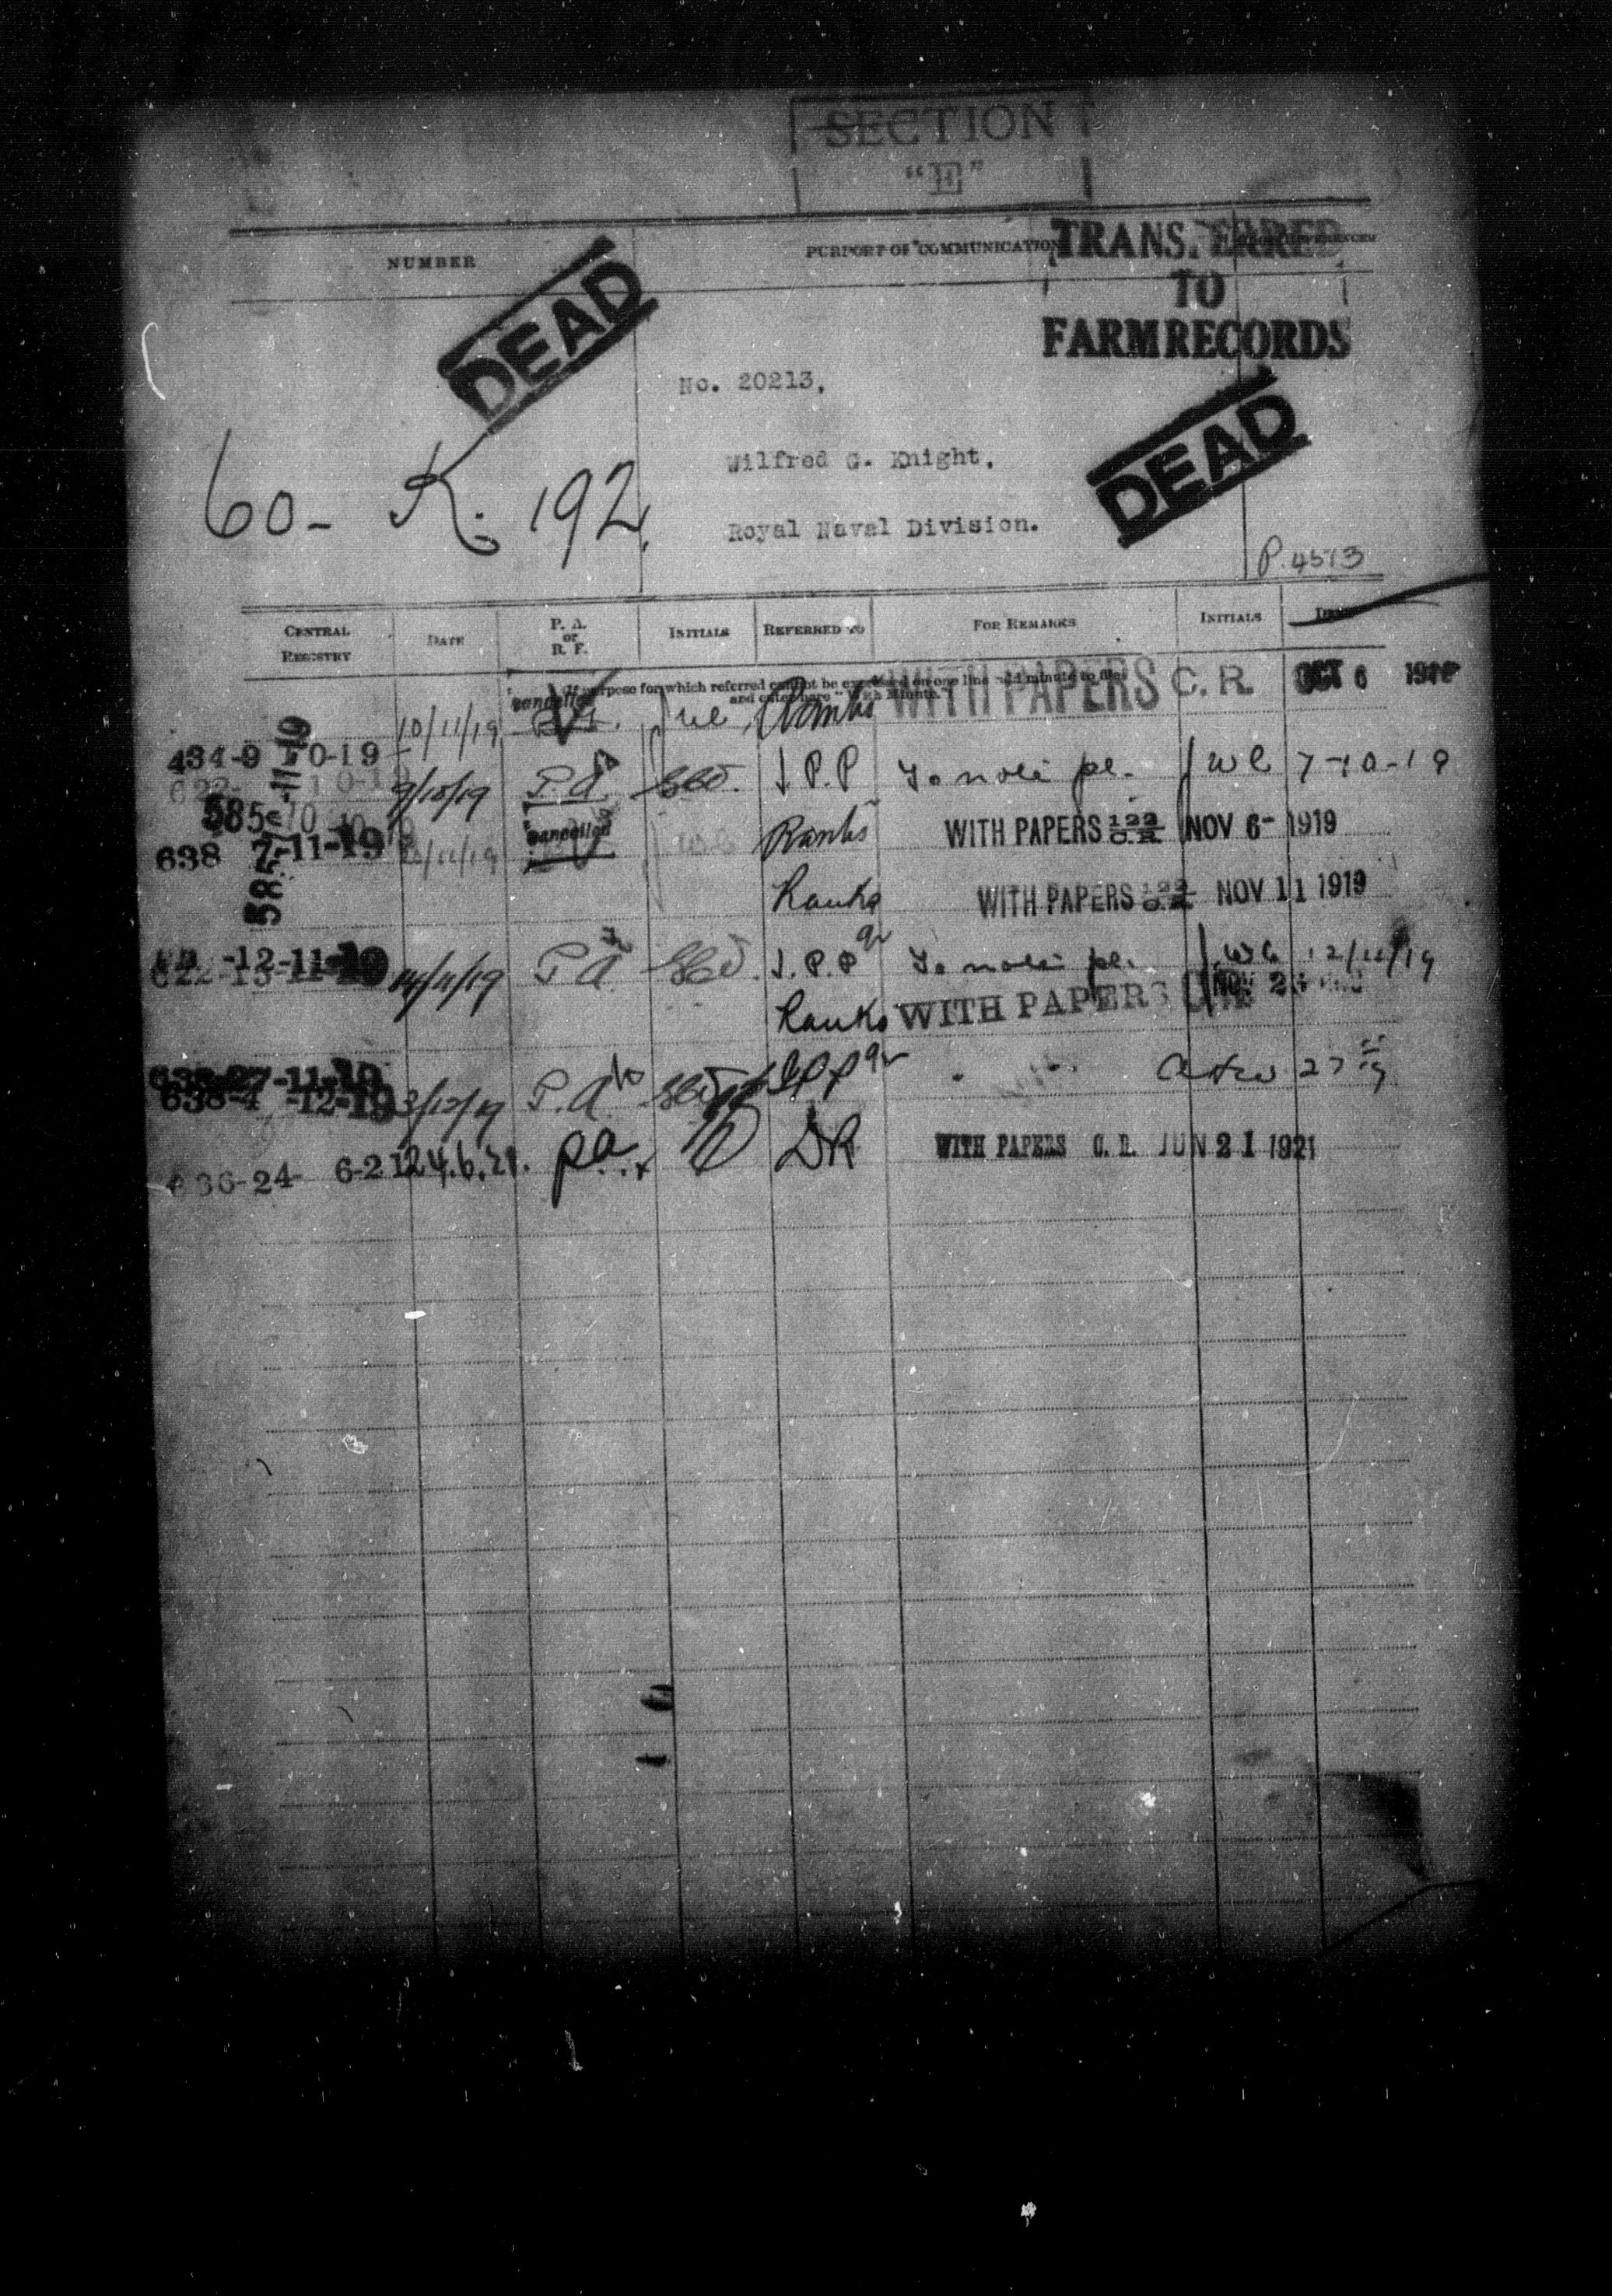 SECTION
"E"
NUMBER
PURPORT OF COMMUNICATION
TRANS. ERRED
TO
FARM RECORDS
DEAD
No. 20213,
DEAD
Wilfred G. Knight,
60- K. 192.
Royal Naval Division.
P. 4573
CENTRAL REGISTRY
DATE
P. A. or R. F.
INITIALS
REFERRED TO
FOR REMARKS
INITIALS
purpose for which referred cannot be expressed on one line add minute to file
and enter here "With Minute."
10/11/19 Cancelled Ranks WITH PAPERS C. R. OCT 6
434-9 10-19
9/10/19 P.A. J.P.P. To note pl. WL 7-10-19
585
638 7-11-19 Cancelled Ranks WITH PAPERS 122 C.R. NOV 6- 1919
Ranks WITH PAPERS 122 C.R. NOV 11 1919
-12-11-19
14/11/19 P.A. J.P.P. To note pl. 12/11/19
Ranks WITH PAPERS NOV
638-27-11-19
638-4 -12-19 3/12/19 P.A. J.P.P. 27
636-24- 6-21 24.6.21. pa. DR WITH PAPERS C. R. JUN 21 1921